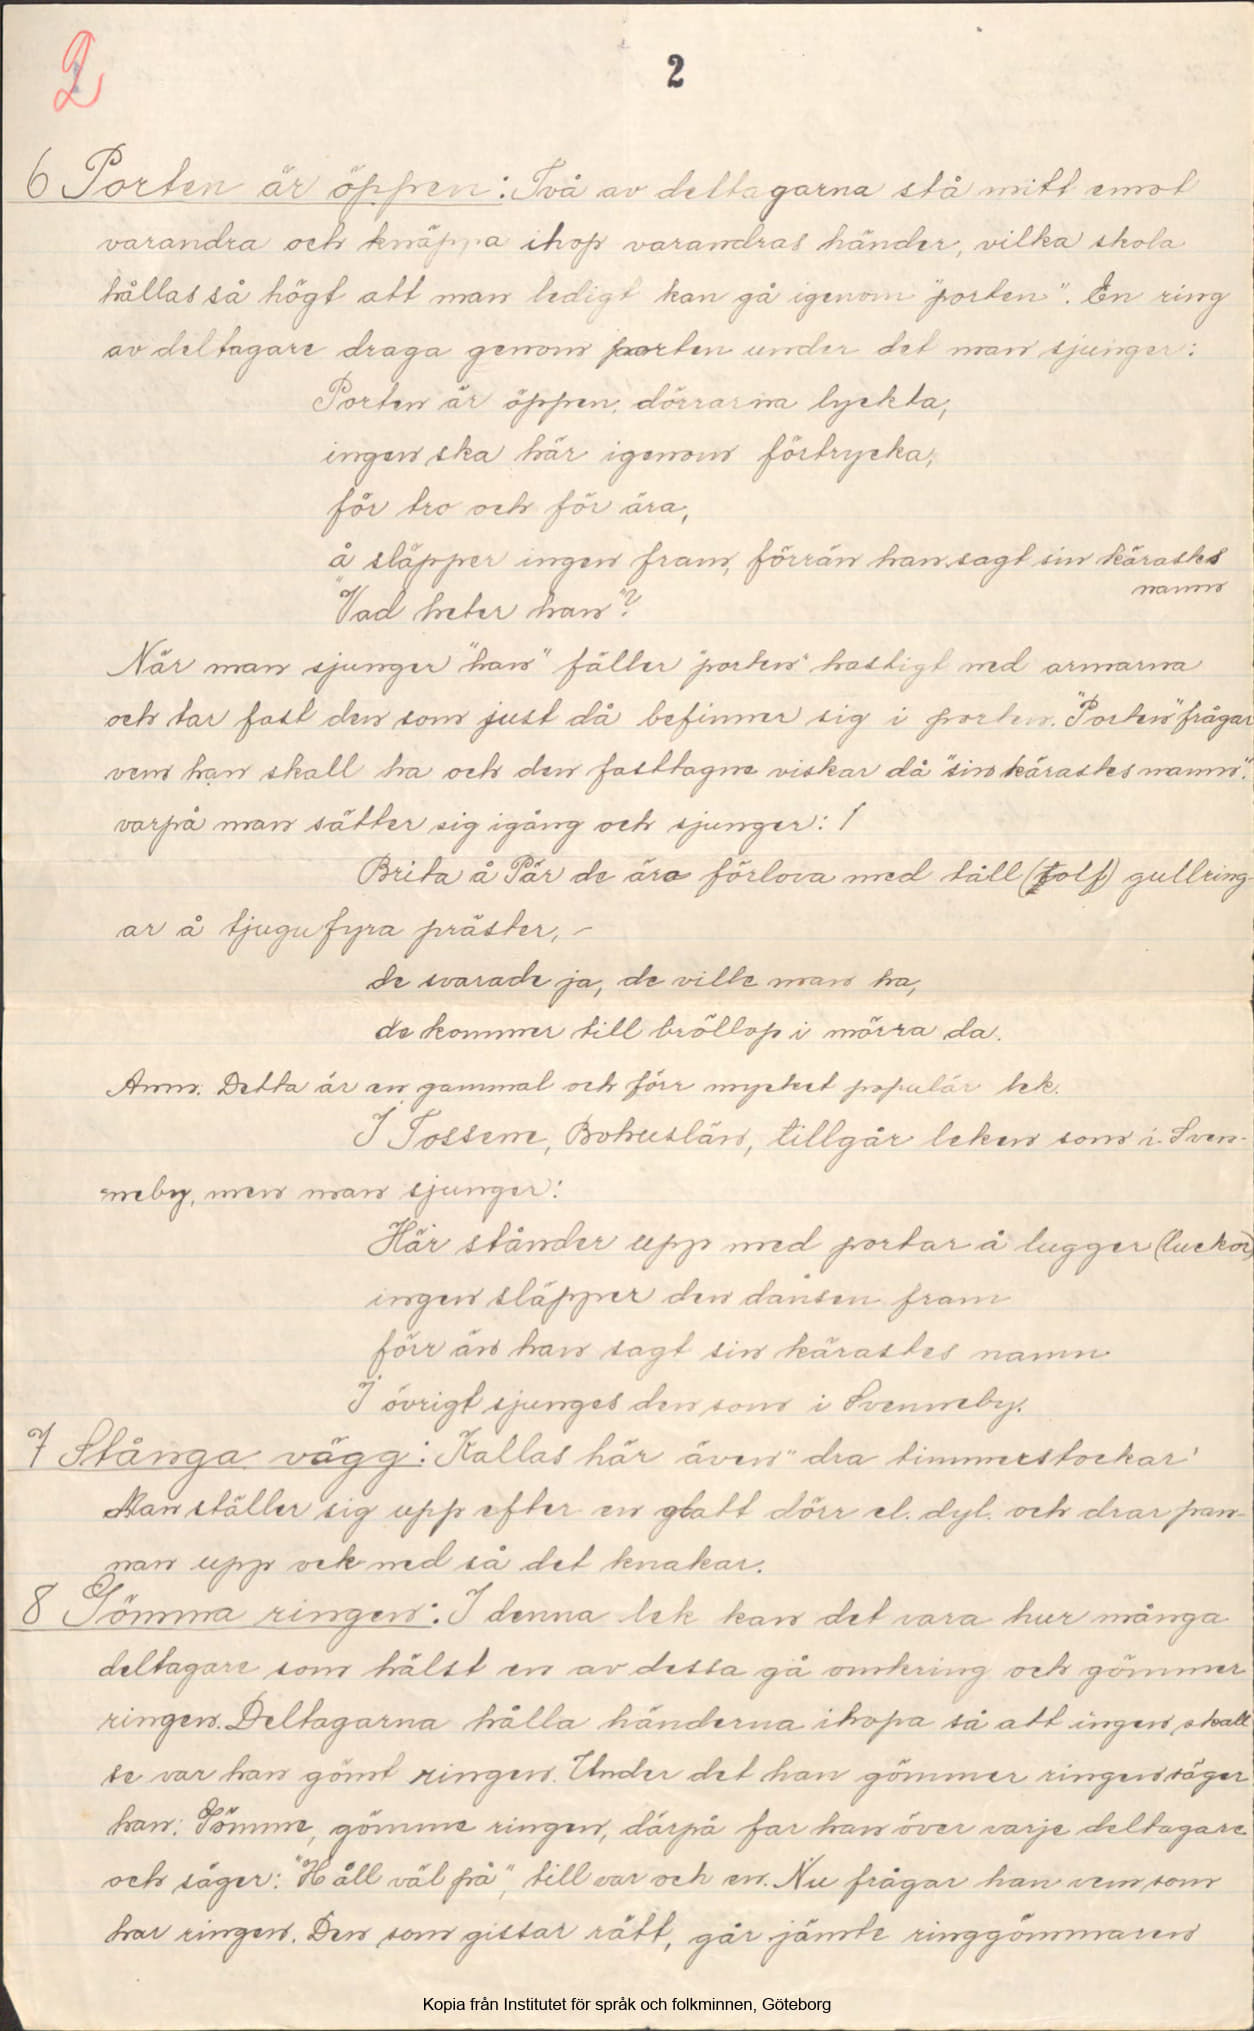 2
2
6 Porten är öppen: Två av deltagarna stå mitt emot
varandra och knäppa ihop varandras händer, vilka skola
hållas så högt att man ledigt kan gå igenom "porten". En ring
av deltagare draga genom porten under det man sjunger:
Porten är öppen, dörrarna lyckta,
ingen ska här igenom förtrycka,
för tro och för ära,
å släpper ingen fram, förrän han sagt sin kärastes
namn
"Vad heter han"?
När man sjunger "han" fäller "porten" hastigt ned armarna
och tar fast den som just då befinner sig i porten. "Porten" frågar
vem han skall ha och den fasttagne viskar då "sin kärastes namn".
varpå man sätter sig igång och sjunger: /
Brita å Pär de ära förlova med tåll (tolf) gullring-
ar å tjugufyra präster, –
de svarade ja, de ville man ha,
de kommer till bröllop i mörra da.
Anm. Detta är en gammal och förr mycket populär lek.
I Tossene, Bohuslän, tillgår leken som i Sven-
neby, men man sjunger:
Här ständer upp med portar å lugger (luckor)
ingen släpper den dansen fram
förr än han sagt sin kärastes namn
I övrigt sjunges den som i Svenneby.
7 Stånga vägg: Kallas här även "dra timmerstockar'
Man ställer sig upp efter en glatt dörr el. dyl. och drar pan-
nan upp ock ned så det knakar.
8 Gömma ringen: I denna lek kan det vara hur många
deltagare som hälst en av dessa gå omkring och gömmer
ringen. Deltagarna hålla händerna ihopa så att ingen skall
se var han gömt ringen. Under det han gömmer ringen säger
han: Gömme, gömme ringen, därpå far han över varje deltagare
och säger: "Håll väl på", till var och en. Nu frågar han vem som
har ringen. Den som gissar rätt, går jämte ringgömmaren
Kopia från Institutet för språk och folkminnen, Göteborg